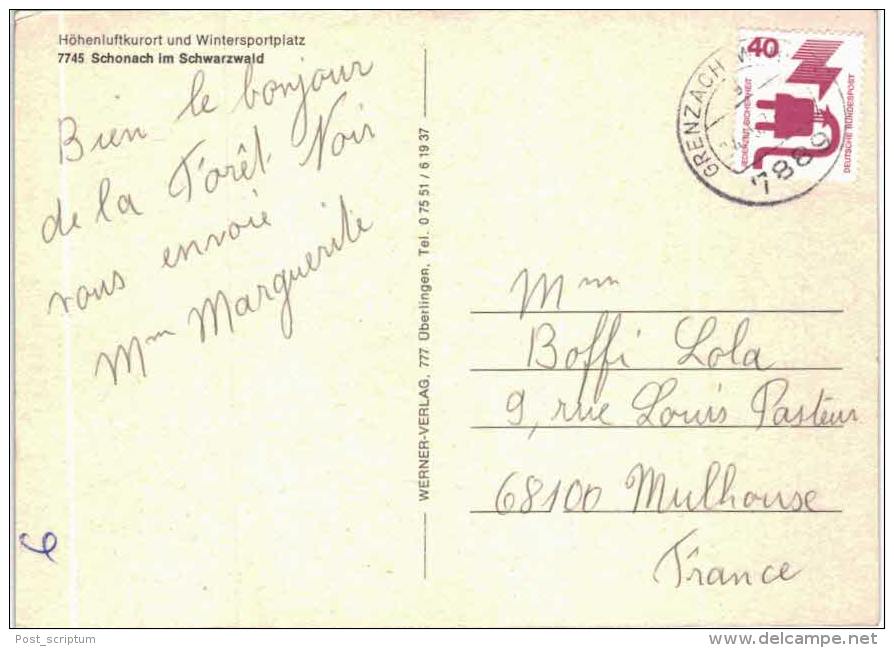 Höhenluftkurort und Wintersportplatz
7745 Schonach im Schwarzwald
Bien le bonjour
de la Forêt Noir
vous envoie
Mme Marguerite
WERNER-VERLAG, 777 Überlingen, Tel. 0 75 51 / 6 19 37
GRENZACH
7889
40
JEDERZEIT SICHERHEIT
DEUTSCHE BUNDESPOST
Mme
Boffi Lola
9, rue Louis Pasteur
68100 Mulhouse
France
Post_scriptum
delcampe.net